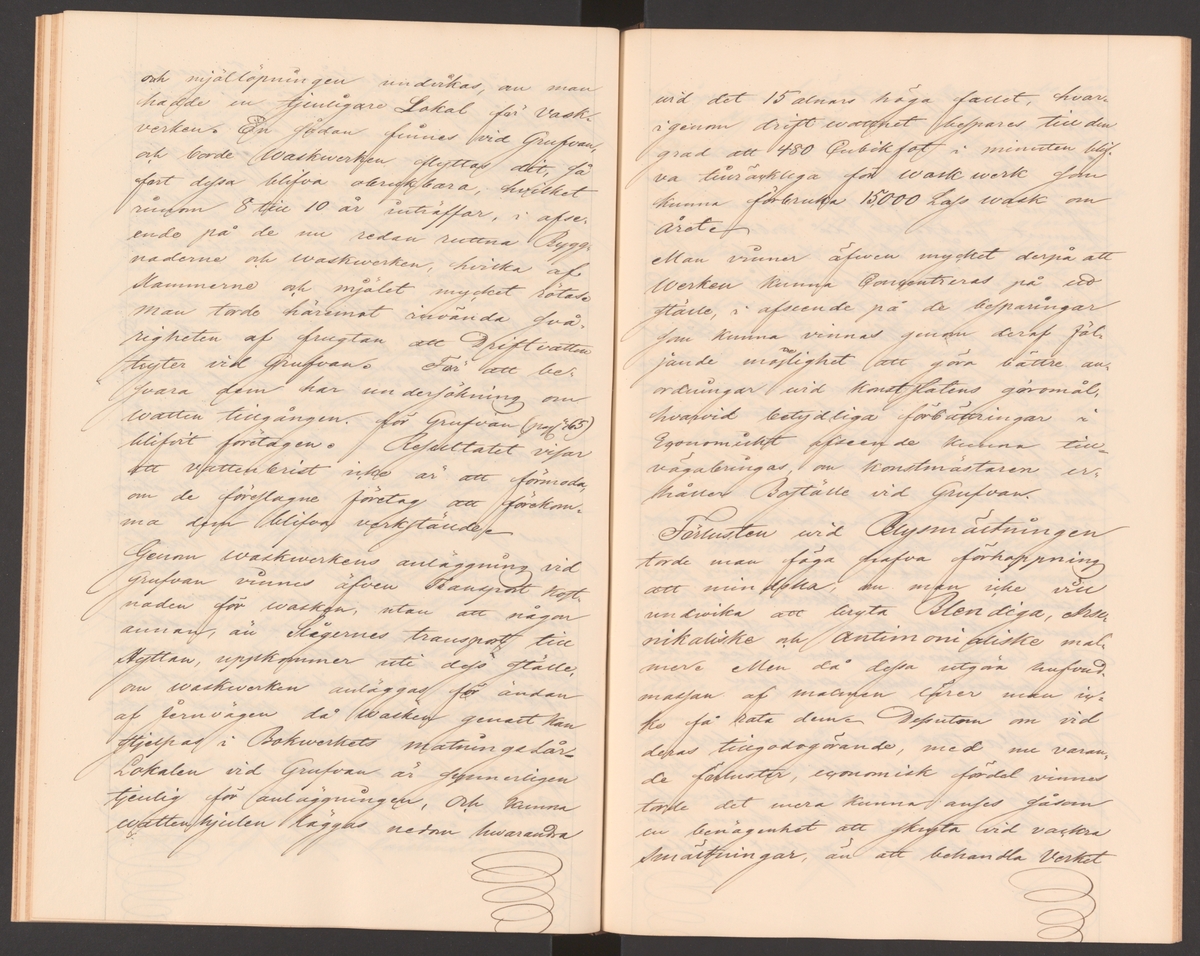 och mjöllöpningen undvikas, om man
hadde en tjenligare Lokal för Vask-
verken. En sådan finnes vid Grufvan,
och borde Waskwerken flyttas dit, så
fort dessa blifva obrukbara, hvilket
innom 8 till 10 år inträffar, i afse-
ende på de nu redan ruttna Bygg-
naderne och waskwerken, hvilka af
Kammerne och mjölet mycket rötas.
Man torde häremot invända Svå-
righeten af frugtan att Driftvatten
tryter vid Grufvan. För att be-
svara dem har undersökning om
watten tillgången för Grufvan (pag 465)
blifvit företagen. Resultatet visar
att vattenbrist icke är att förmoda,
om de föreslagne företag att förekom-
ma dem blifva verkstände.
Genom waskwerkens anläggning vid
Grufvan vinnes äfven Transport kost-
naden för wasken, utan att någon
annan, än Slagernes transport till
Hyttan, uppkommer uti dess ställe,
om waskwerken anläggas för ändan
af Jernvägen då Wasken genast kan
stjelpas i Bokwerkets matningslår.
Lokalen vid Grufvan är synnerligen
tjenlig för anläggningen, och kunna
wattenhjulen läggas nedom hwarandra
vid det 15 alnars höga fallet, hvar-
igenom driftwattnet bespares till den
grad att 480 Cubikfot i minuten blif-
va tillräckliga för wask werk som
kunna förbruka 15,000 Lass wask om
året.
Man vinner äfwen mycket derpå att
Werken kunna Concentreras på ett
ställe, i afseende på de besparingar
som kunna vinnas genom deraf föl-
jande möjlighet att göra bättre an-
ordningar vid Konststatens göromål,
hvarvid betydliga förbättringar i
Economiskt afseende kunna till-
vägabringas, om Konstmästaren er-
håller Boställe vid Grufvan.
Förlusten vid Blysmältningen
torde man föga hafva förhoppning
att minska, om man icke vill
undvika att bryta Blendiga, Arse-
nikaliske och Antimonialiske mal-
mer. Men då dessa utgöra hufvud-
massan af malmen lärer man ic-
ke få rata dem. Desutom om vid
deras tillgodogörande, med nu varan-
de förluster, economisk fördel vinnes
torde det mera kunna anses såsom
en benägenhet att skryta vid vackra
Smältningar, än att behandla Verket